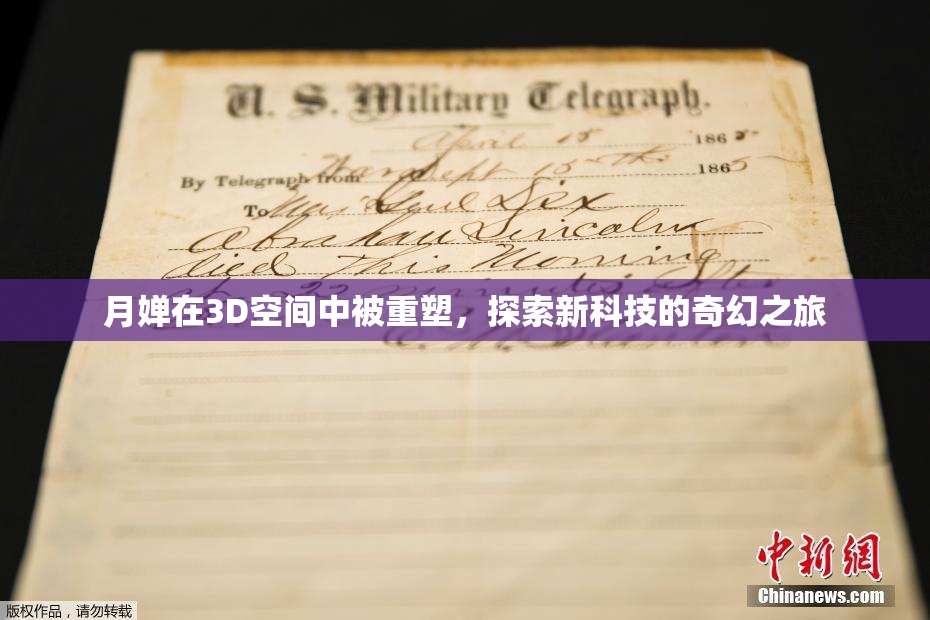 U. S. Military Telegraph.
April 15 1865
By Telegraph from War Dept 15th 1865
To Maj Genl Dix
Abraham Lincoln
died This Morning
22 minutes after
月婵在3D空间中被重塑，探索新科技的奇幻之旅
E. M. Stanton
中新網
Chinanews.com
版权作品，请勿转载